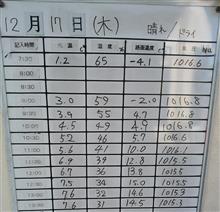 12月17日(木) 晴れ/ドライ
記入時間 気温 湿度 路面温度
7:30 1.2 65 -4.1 1016.6
8:00
8:30
9:00 3.0 59 -2.0 1016.8
3.9 55 4.7 1016.8
10:00 4.5 49 4.9 1016.8
5.2 46 5.7 1016.6
11:00 5.6 41 10.0
6.9 39 12.8 1015.5
12:00 6.7 36 13.8 1015.5
7.5 34 15.0
7.6 32 14.6 1015.3
7.6 31 14.5 1015.3